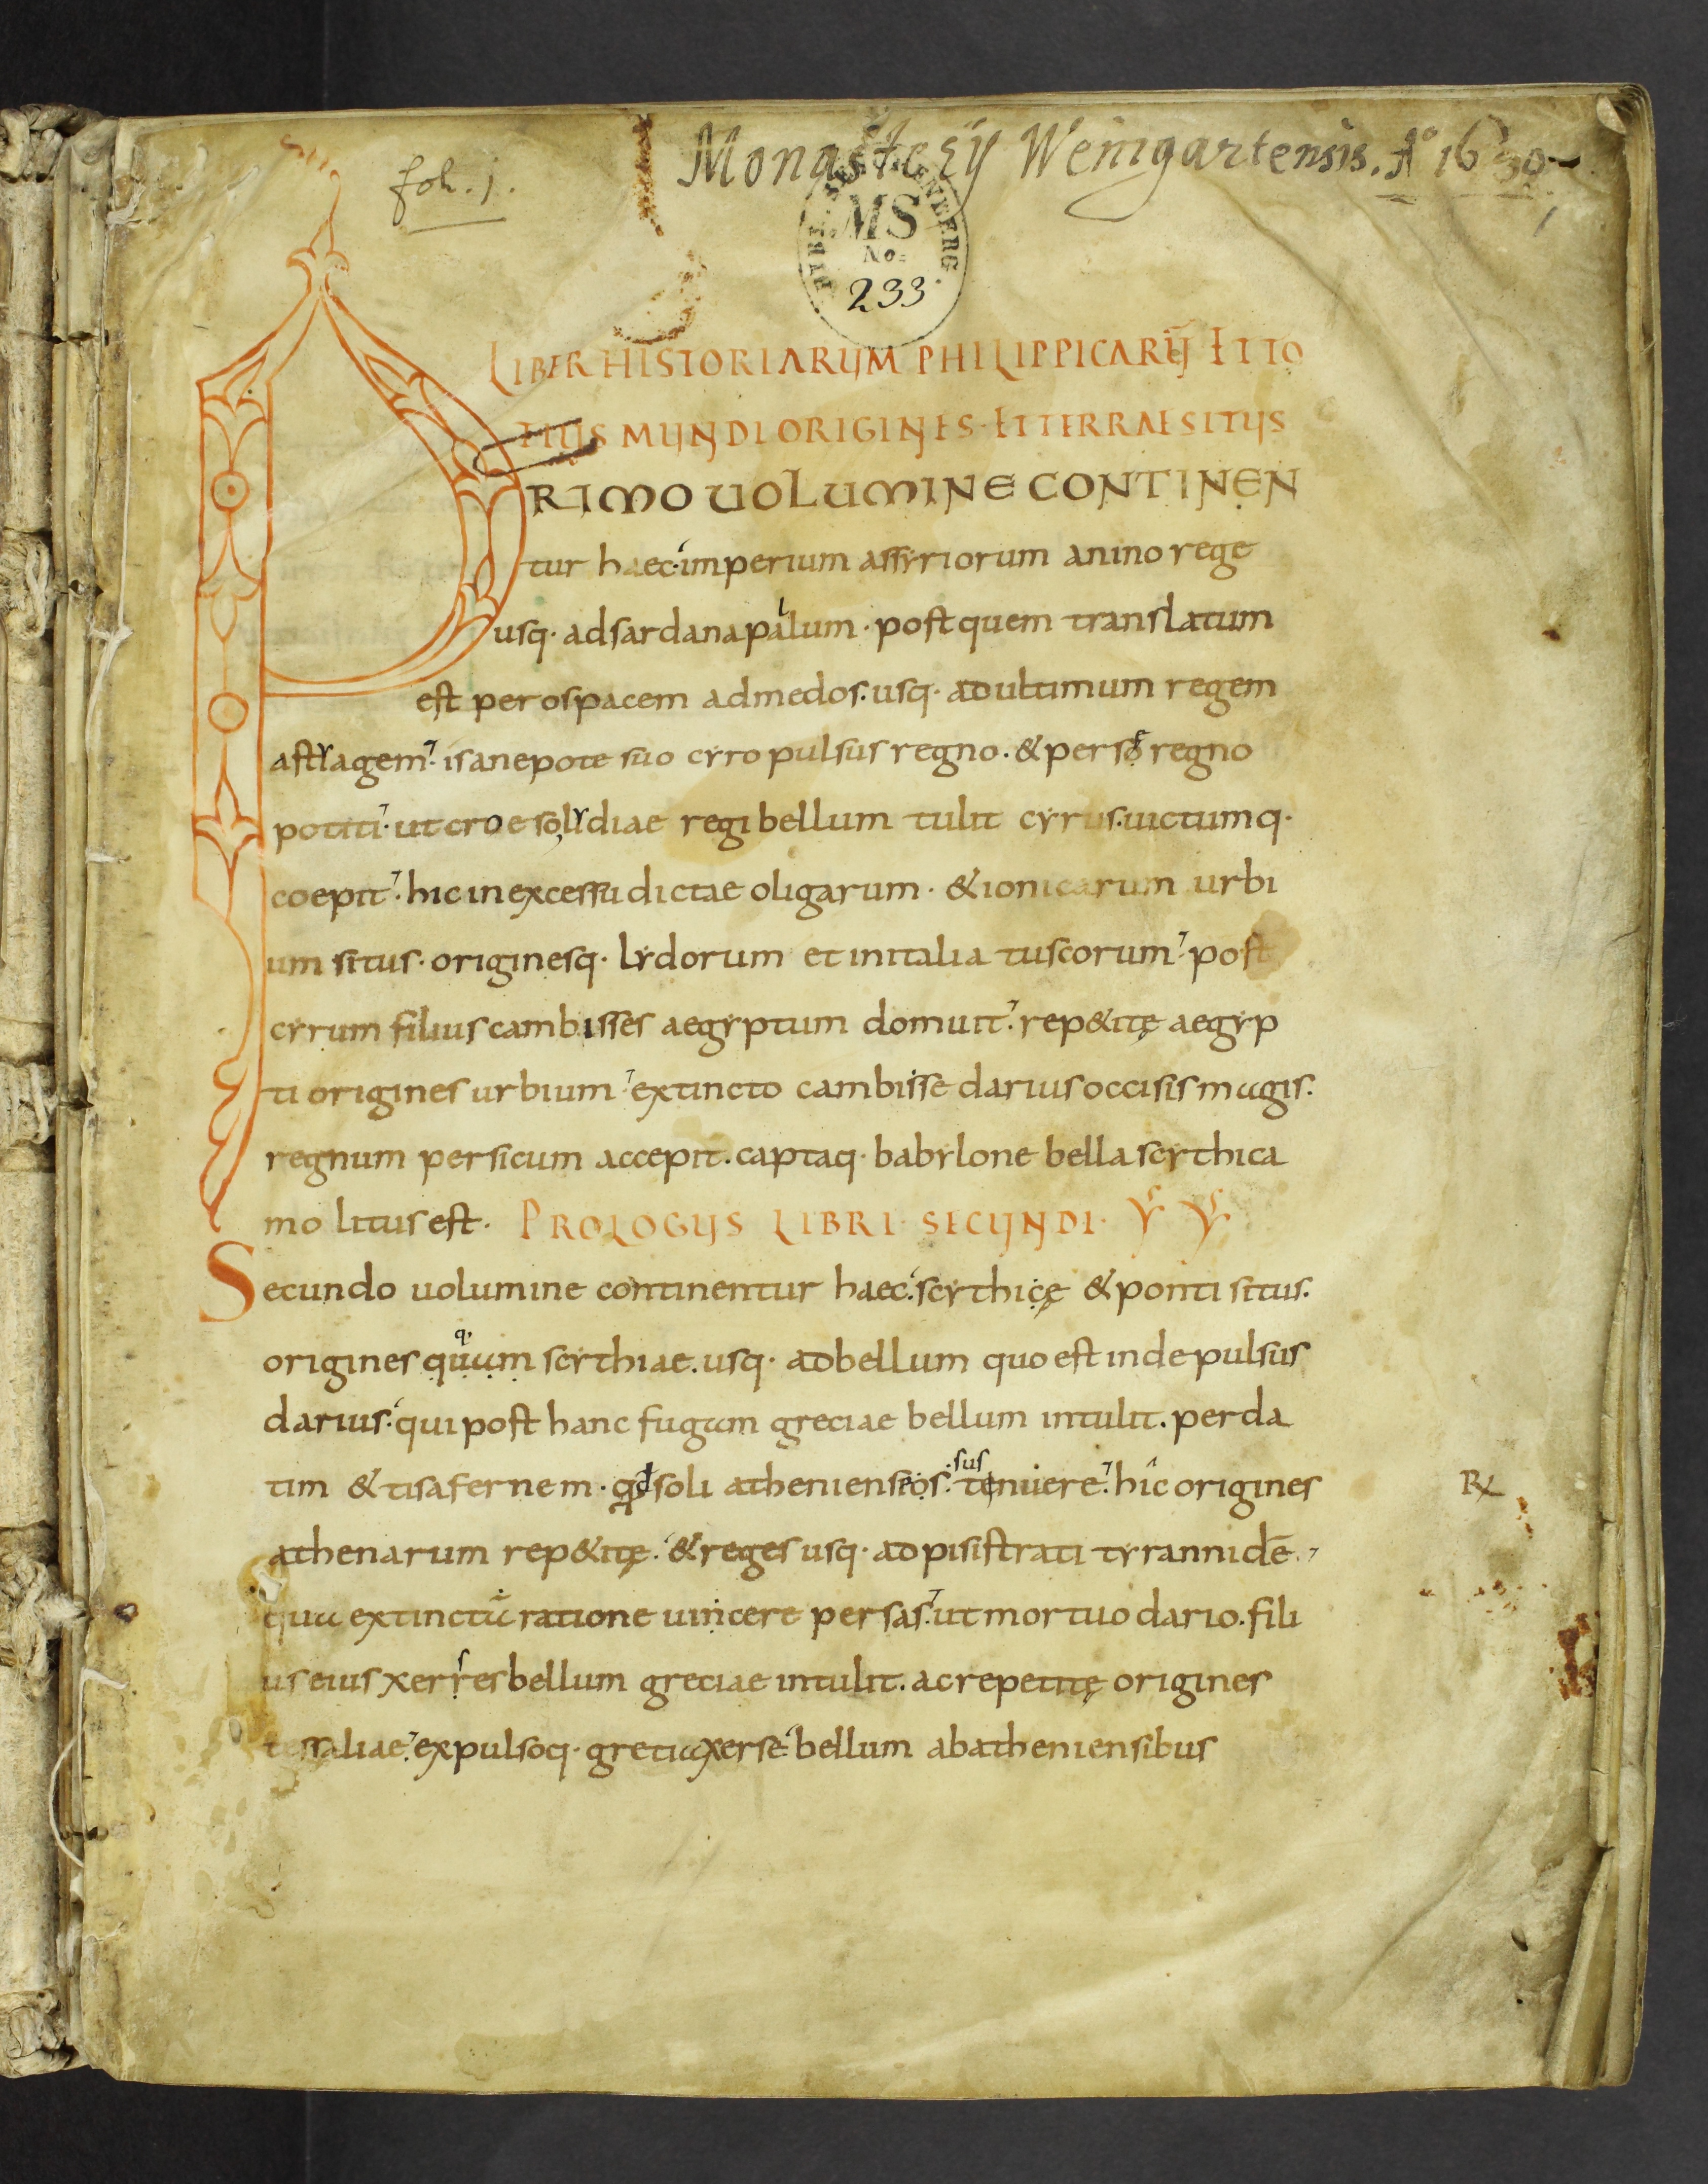 fol. 1.
Monasterij Weingartensis. Aº 1630
MS
No:
233.
LIBER HISTORIARUM PHILIPPICARŪ ET TO
TIUS MUNDI ORIGINES · ET TERRAE SITUS
PRIMO UOLUMINE CONTINEN
tur haec· imperium assyriorum anino rege
usq· adsardanapallum · post quem translatum
est per ospacem admedos. usq· ad ultimum regem
astyagem. is anepote suo cyro pulsus regno. & perso regno
potiti· ut croeso lydiae regi bellum tulit cyrus. uictumq·
coepit. hic in excessu dictae oligarum · & ionicarum urbi
um situs · originesq· lydorum et initalia tuscorum. post
cyrum filius cambisses aegyptum domuit. rep&itę aegyp
ti origines urbium. extincto cambisse darius occisis magis.
regnum persicum accepit. captaq· babylone bella scythica
molitus est. PROLOGUS LIBRI · SECUNDI ·
Secundo uolumine continentur haec. scythicę & ponti situs.
origines quum scythiae. usq· ad bellum quo est inde pulsus
darius. qui post hanc fugam greciae bellum intulit. per da
tim & tisafernem · soli athenienseos. sus tenuere. hic origines
athenarum rep&itę. & reges usq· ad pisistrati tyrannidē.
qua extinctū ratione uincere persas. ut mortuo dario. fili
us eius xerses bellum greciae intulit. ac repetitę origines
tessaliae. expulsoq· gretia xerse. bellum ab atheniensibus